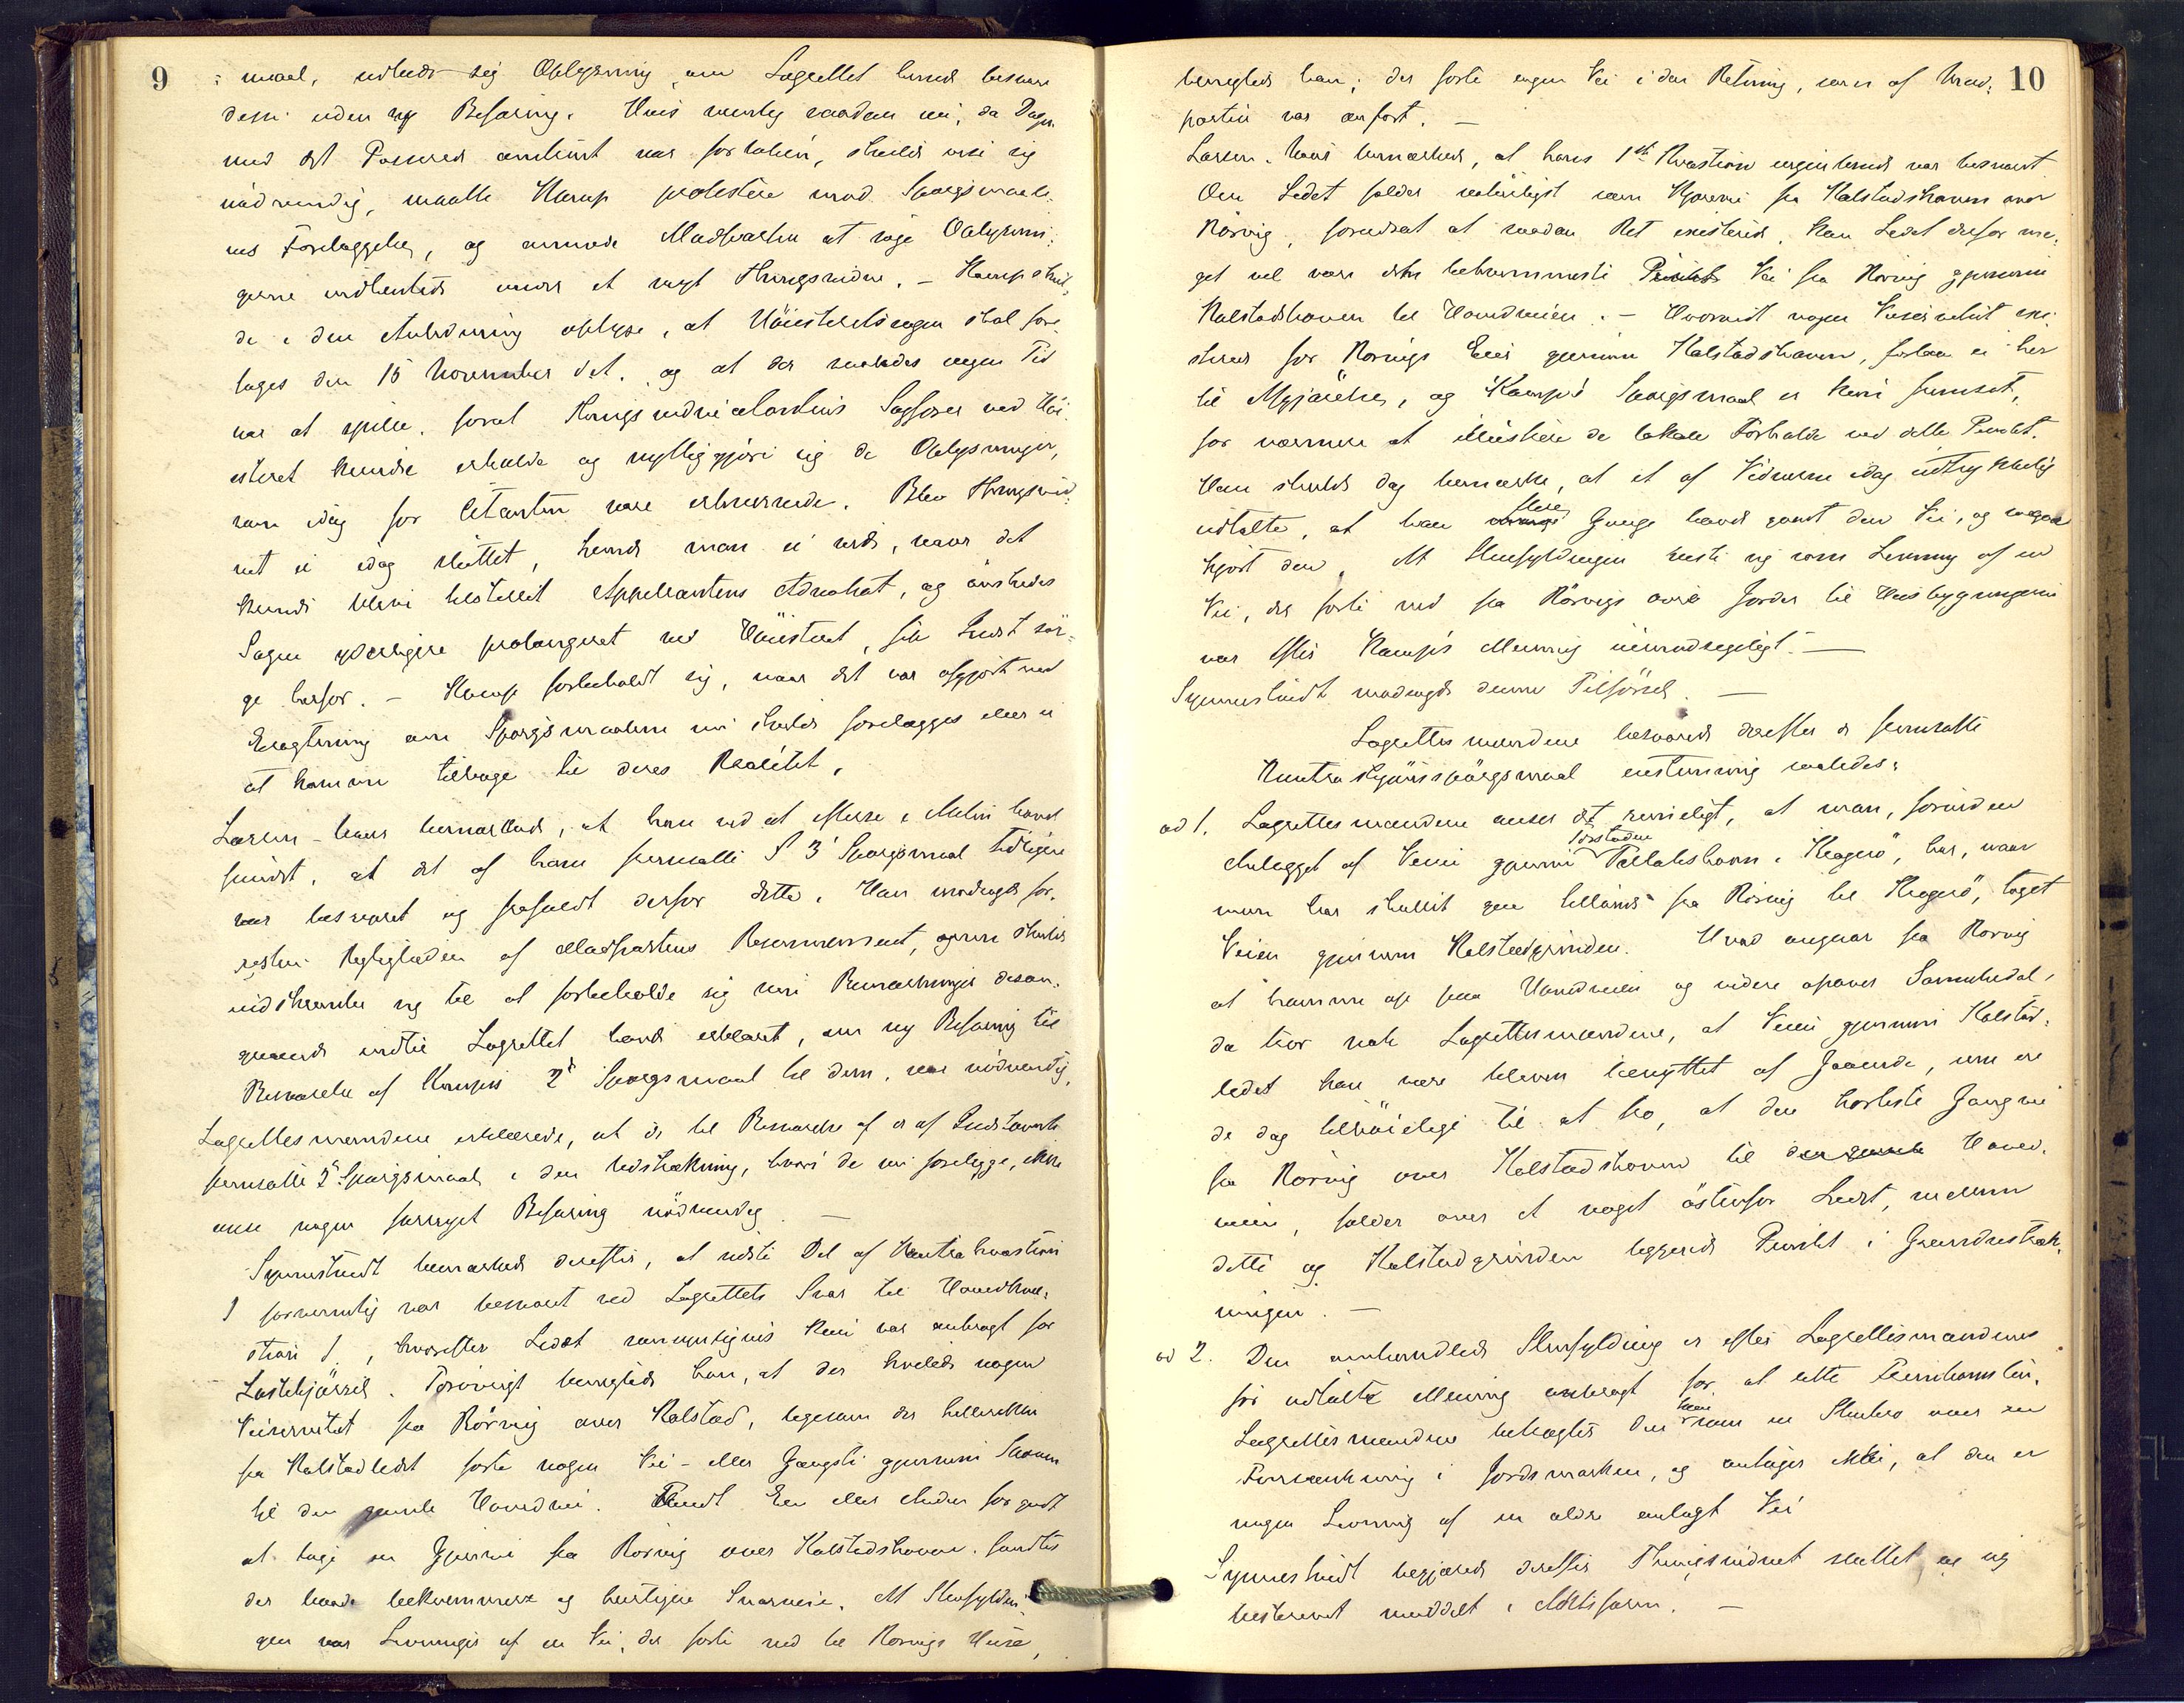 9
: maal, udbad sig Oplysning om Lagrettet kunde besvare
dem uden ny Befaring. Hvis nemlig saadan ei, da Dagen
med det Passerede omtrent var forløben, skulde vise sig
nødvendig, maatte Kamp protestere mod Spørgsmaale-
nes Forelæggelse, og anmode Modparten at søge Oplysnin-
gerne indhentede under et nyt Thingsvidne. – Kamp skul-
de i den Anledning oplyse, at Høiesteretssagen skal fore-
tages den 15 November d.A. og at der saaledes ingen Tid
var at spilde, forat Thingsvidnecitantens Sagfører ved Høi-
esteret kunde erholde og nyttiggjøre sig de Oplysninger,
som idag for Citanten vare erhvervede. Blev Thingsvid-
net ei idag sluttet, kunde man ei vide, naar det
kunde blive tilstillet Appellantens Advokat, og ønskedes
Sagen yderligere prolongeret ved Høiesteret, fik Lindt sør-
ge herfor. – Kamp forbeholdt sig, naar det var afgjort ved
Eragtning om Spørgsmaalene nu skulde forelægges eller ei
at komme tilbage til deres Realitet.
Larsen-Naur bemærkede, at han ved at eftersee Akten havde
fundet, at det af ham fremsatte S 3 Spørgsmaal tidligere
var besvaret og frafaldt derfor dette. Han modsagde for-
resten Rigtigheden af Modpartens Raisonnement, men skulde
indskrænke sig til at forbeholde sig sine Bemærkninger desan-
gaaende indtil Lagrettet havde erklæret, om ny Befaring til
Besvarelse af Kamps 2det Spørgsmaal til dem, var nødvendig.
Lagrettesmændene erklærede, at de til Besvarelse af de af
fremsatte 2de Spørgsmaal, i den Udstrækning, hvori de nu forelægge, ikke
anse nogen fornyet Befaring nødvendig. –
Synnestvedt bemærkede derefter, at sidste Del af Kontrakvæstion
1 formentlig var besvaret ved Lagrettets Svar til Hovedkvæ-
stion 1, hvorefter Ledet sandsynligvis kun var anbragt for
Lastekjørsel. Forøvrigt benegtede han, at der hvilede nogen
Veiservitut fra Rørvig over Kalstad, ligesom der hellerikke
fra Kalstadledet førte nogen Vei- eller Gangsti gjennem Skoven
til den gamle Hovedvei. Fandt Een eller Anden for godt
at tage en Gjenvei fra Rørvig over Kalstadskoven, fandtes
der baade bekvemmere og hurtigere Snarveie. At Stenfyldin-
gen var Levninger af en Vei, der førte ned til Rørvigs Huse,
10
benegtede han; der førte ingen Vei i den Retning, som af Mod-
partiet var anført. –
Larsen-Naur bemærkede, at hans 1ste Kvæstion ingenlunde var besvaret
Om Ledet falder naturligst som Gjenvei fra Kalstadskoven over
Rørvig, forudsat at saadan Ret existerede, kan Ledet derfor me-
get vel være det bekvemmeste Punkt Vei fra Rørvig gjennem
Kalstadskoven til Hovedveien. – Hvorvidt nogen Veiservitut exi-
sterer for Rørvigs Eier gjennem Kalstadskoven, forlaa ei her
til Afgjørelse, og Kamps Spørgsmaal er kun fremsat,
for nærmere at illustrere de lokale Forholde ved dette Punkt.
Han skulde dog bemærke, at et af Vidnerne idag udtrykkelig
udtalte, at han flere Gange havde gaaet den Vei, og ogsaa
kjørt den. At Stenfyldingen viste sig som Levning af en
Vei, der førte ned fra Rørvigs øvre Jorder til Husbygningerne
var efter Kamps Mening uimodsigeligt. –
Synnestvedt modsagde denne Tilførsel. –
Lagrettesmændene besvarede derefter de fremsatte
Kontraskjønsspørgsmaal enstemmig saaledes:
ad 1. Lagrettesmændene anser det rimeligt, at man, forinden
Anlægget af Veien gjennem Forstaden Tallakshavn i Kragerø, har, naar
man har skullet gaa tillands fra Rørvig til Kragerø, taget
Veien gjennem Kalstadgrinden. Hvad angaar fra Rørvig
at komme op paa Hovedveien og videre opover Sannikedal,
da tror nok Lagrettesmændene, at Veien gjennem Kalstad-
ledet kan være bleven benyttet af Gaaende, men ere
de dog tilbøielige til at tro, at den korteste Gangvei
fra Rørvig over Kalstadskoven til den gamle Hoved-
veien, falder over et noget østenfor Ledet, mellem
dette og Kalstadgrinden liggende Punkt i Grændestræk-
ningen. –
ad 2. Den omhandlede Stenfylding er efter Lagrettesmændenes
før udtalte Mening anbragt for at lette Fremkomsten.
Lagrettesmændene betragter den kun som en Stenbro over en
Forsænkning i Jordsmonnet, og antager ikke, at den er
nogen Levning af en ældre anlagt Vei
Synnestvedt begjærede derefter Thingsvidnet sluttet og sig
beskrevet meddelt i Aktsform. –